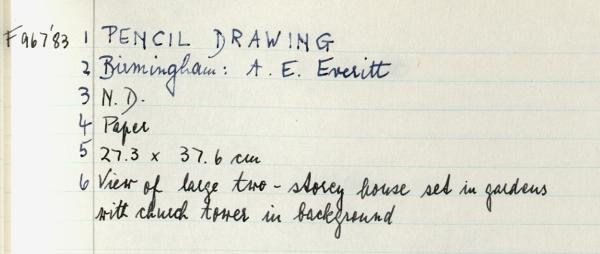 F967'83 1 PENCIL DRAWING
2 Birmingham: A. E. Everitt
3 N.D.
4 Paper
5 27.3 x 37.6 cm
6 View of large two-storey house set in gardens
with church tower in background